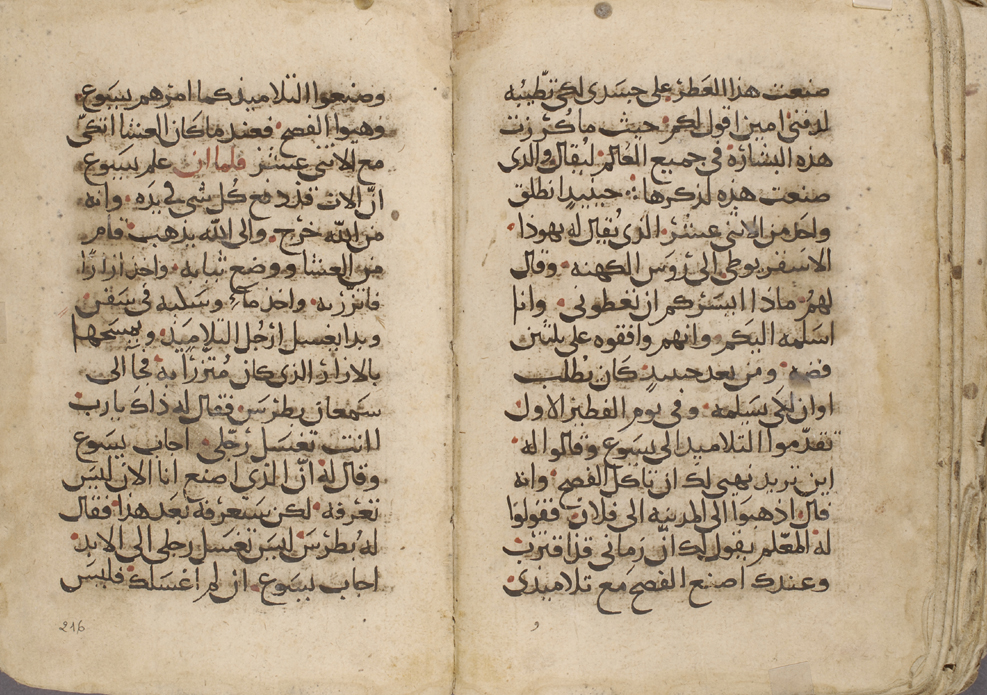 صنعت هذا العطر على جسدى لكى تطيبه
لدفنى امين اقول لكم حيث ما كُرزت
هذه البشارة فى جميع العالم ليقال والذى
صنعت هذه لذكرها حينيدٍ انطلق
واحد من الاثنى عشر الذى يُقال له يهودا
الاسخريوطى الى رُوس الكهنه وقال
لهم ماذا ايسركم ان تعطونى وانا
اسلمه اليكم وانهم وافقوه على ثلثين
فضه ومن بعد حينيدٍ كان يطلب
اوان لكى يسلمه وفى يوم الفطير الاول
تقدّموا التلاميد الى يسوع وقالوا له
اين تريد نهيى لك ان تاكل الفصح وانه
قال اذهبوا الى المدينه الى فلان فقولوا
له المعّلم يقول لك انّ زمانى قد اقترب
وعندك اصنع الفصح مع تلاميدى
9
وصنعوا التلاميد كما امرهم يسوع
وهيوا الفصح فعند ما كان العشا اتكى
مع الاثنى عشر فلما ان علم يسوع
انّ الاب قد دفع كُل شى فى يده وانه
من الله خرج والى الله يذهب قام
من العشا ووضع ثيابه واخذ ازارًا
فاتزر به واخذ ماءً وسكبه فى سقن
وبدا يغسل ارجُل التلاميد ويمسحها
بالازار الذى كان مُتّزرًا به فجا الى
سمعان بطرس فقال له ذاك يا رب
اانت تغسل رجلى اجاب يسوع
وقال له انّ الذى اصنع انا الان ليس
تعرفه لكن ستعرفه بعد هذا فقال
له بُطرس ليس تغسل رجلى الى الابد
اجاب يسوع ان لم اغسلك فليس
216